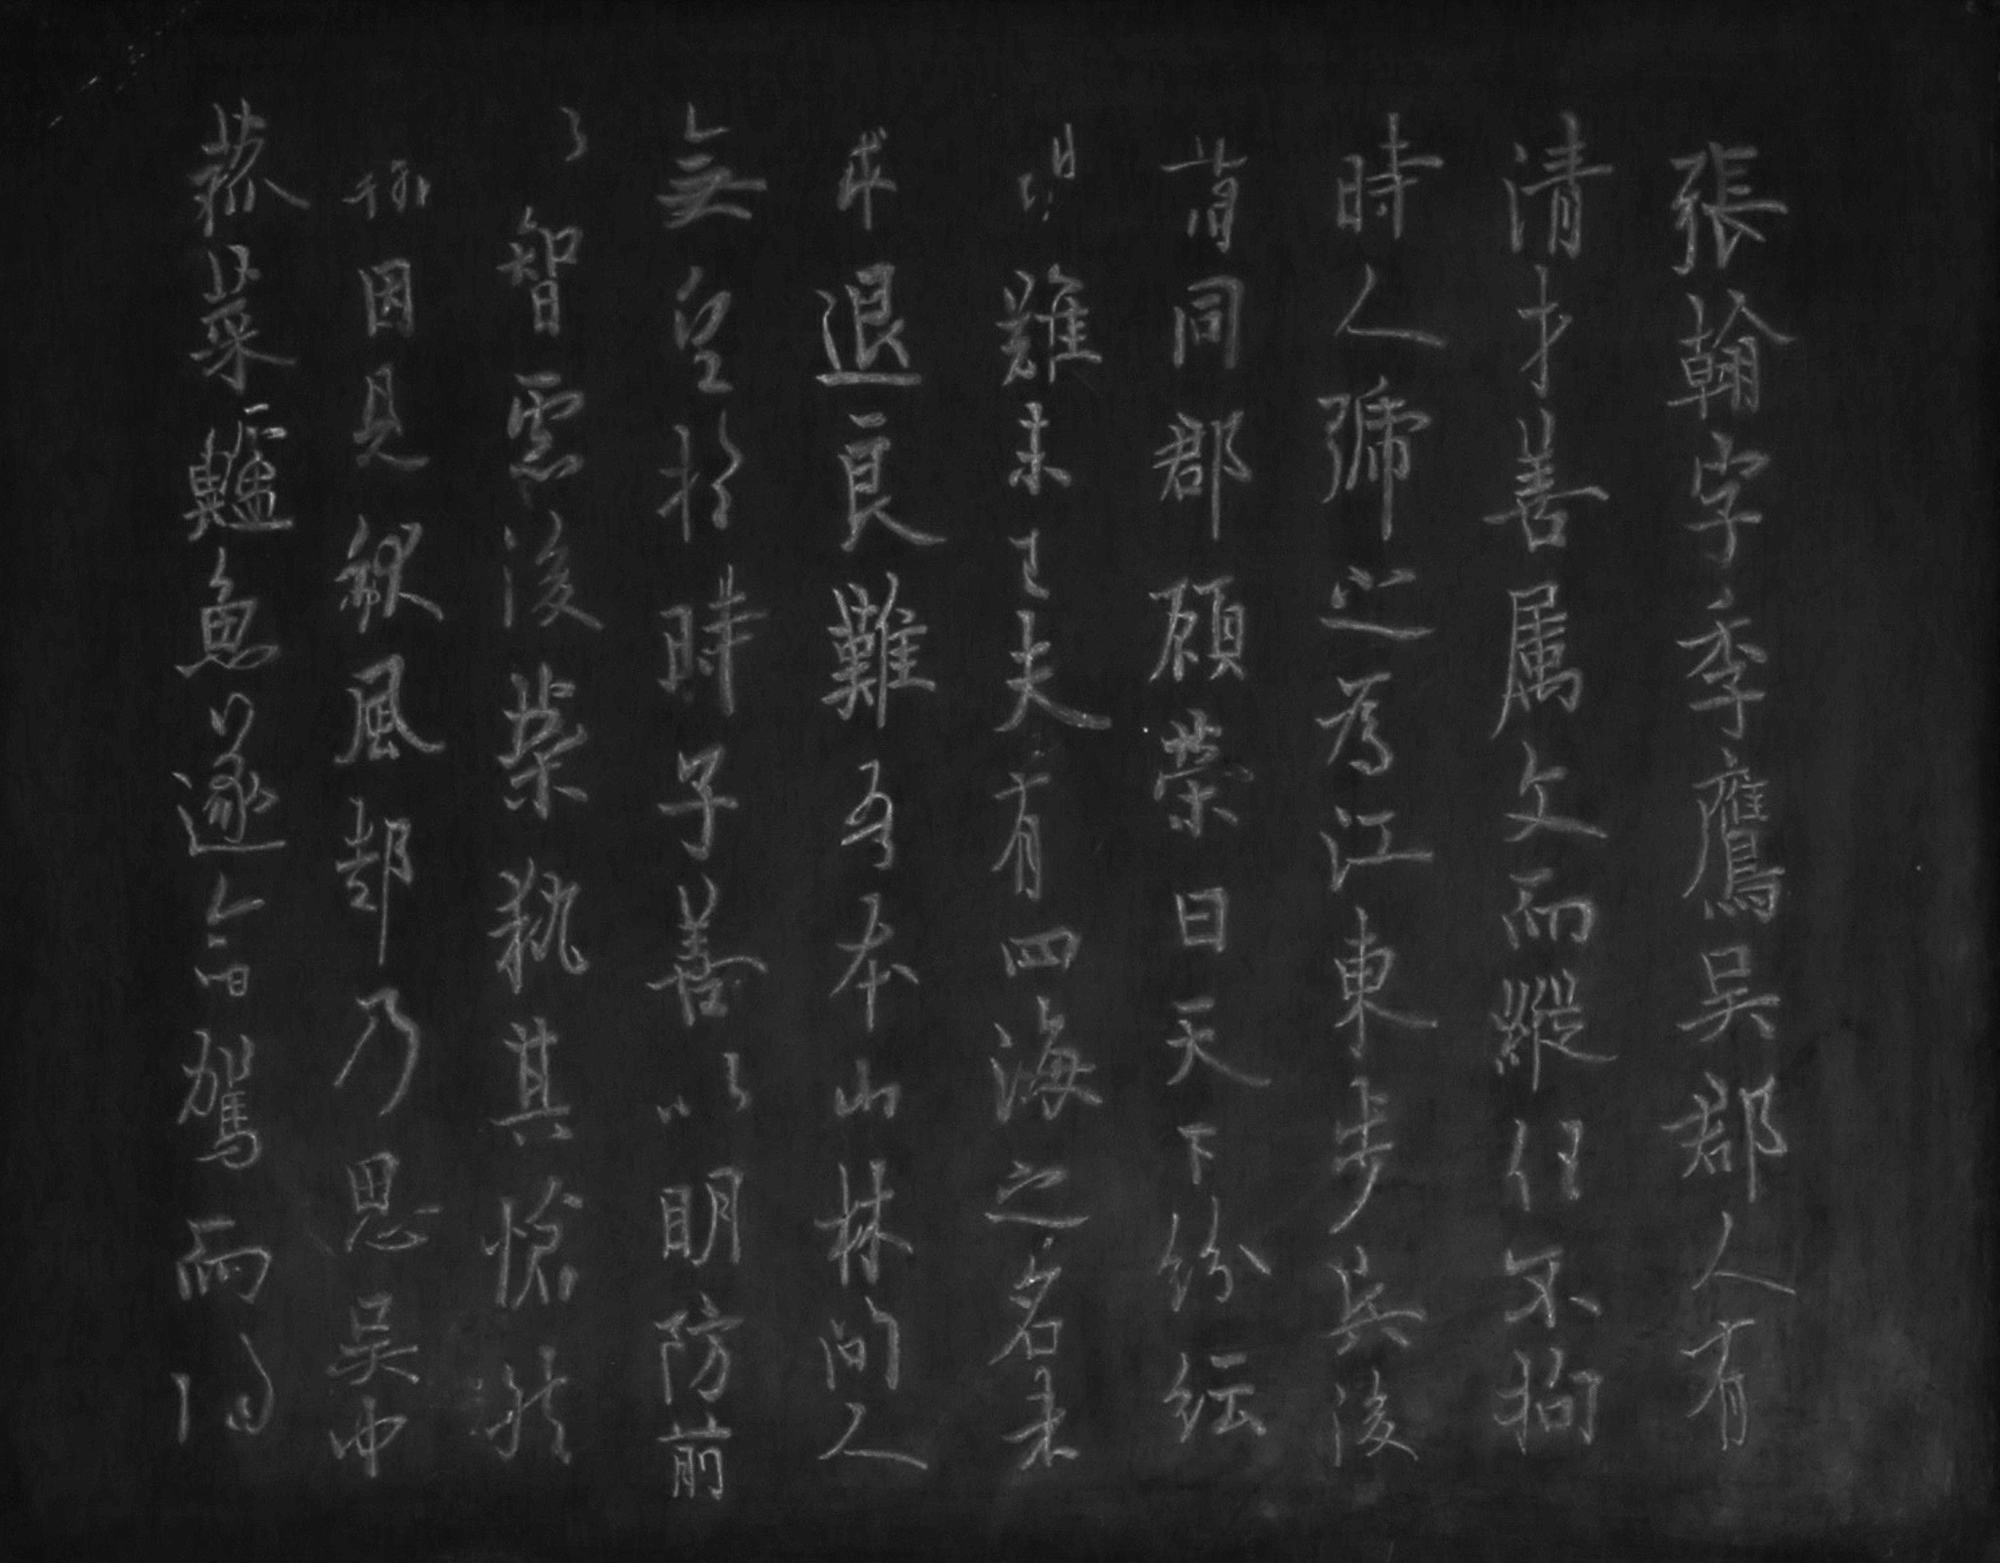 張翰字季鷹吳郡人有
清才善属文而縱任不拘
時人號之為江東步兵後
謂同郡顧榮曰天下紛紜
禍難未已夫有四海之名者
求退良難吾本山林間人
無望於時子善以明防前
以智慮後榮執其愴然
翰因見秋風起乃思吳中
菰菜鱸魚遂命駕而歸